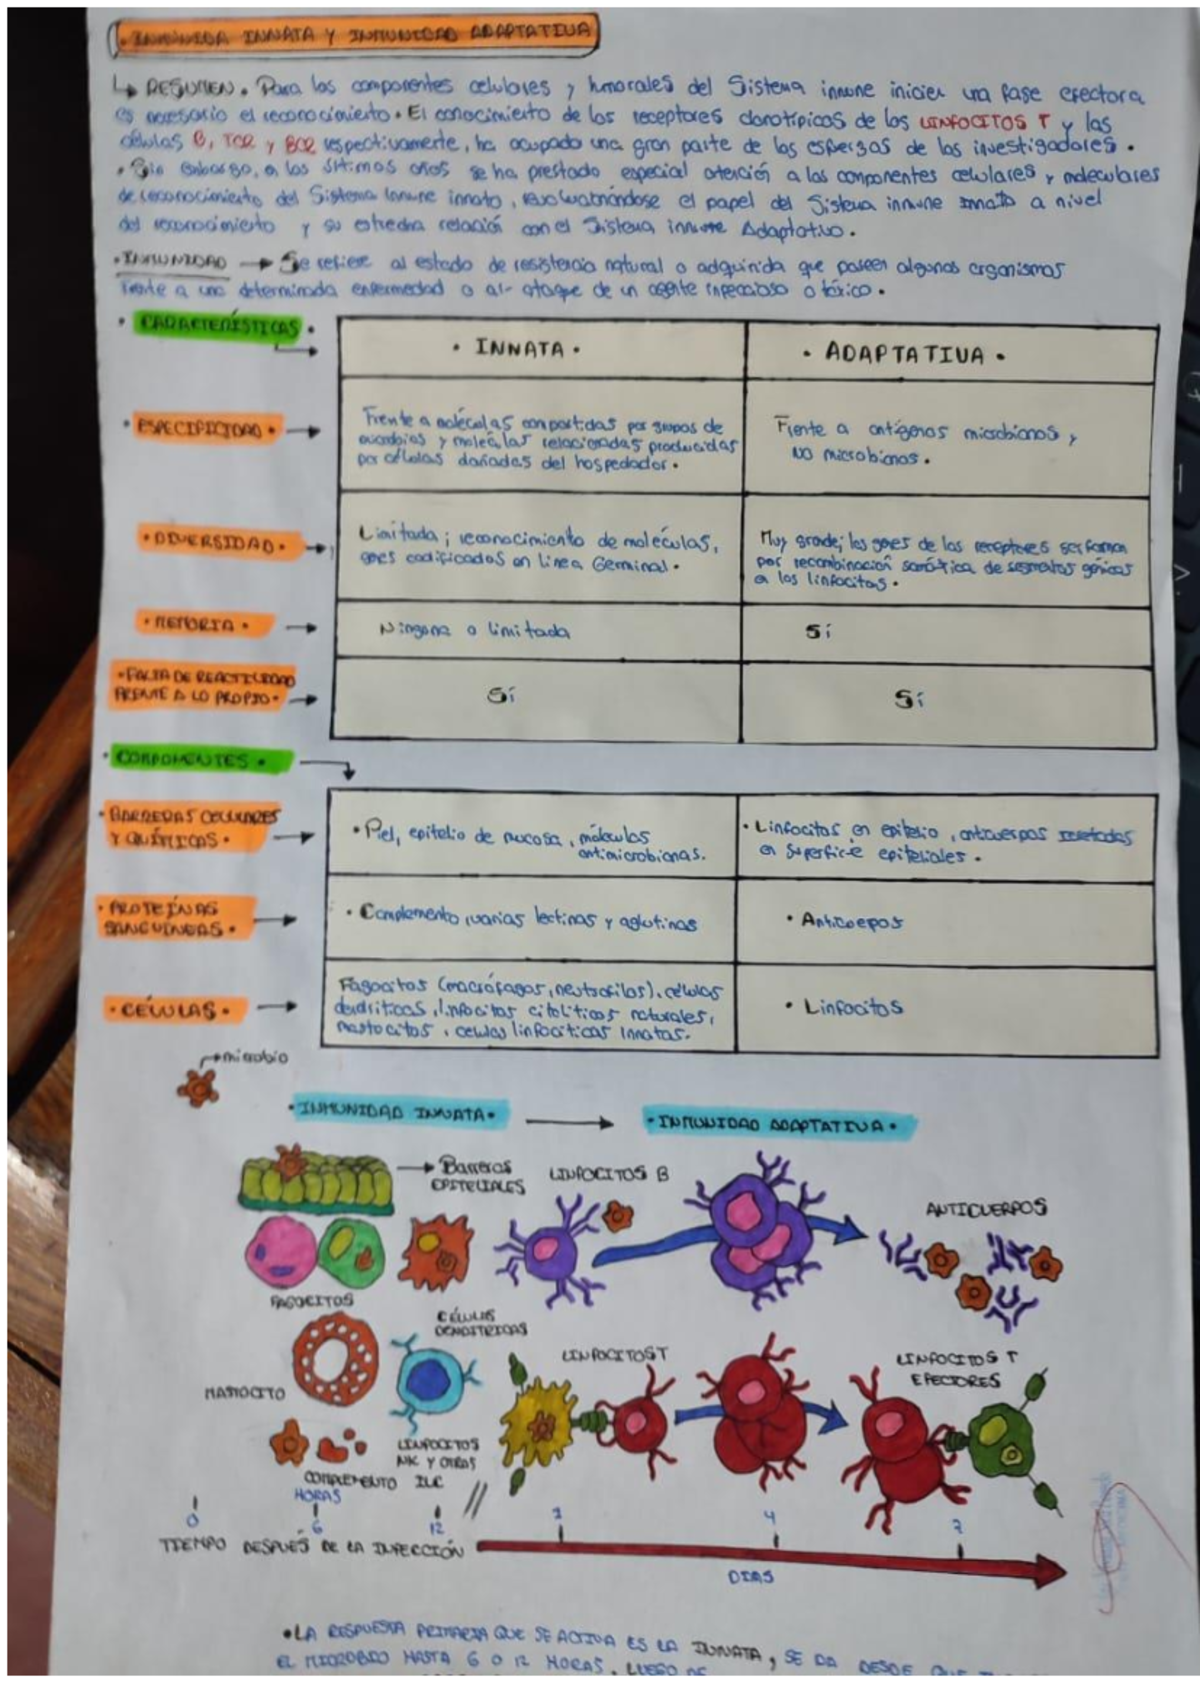 • INMUNIDA INNATA Y INMUNIDAD ADAPTATIVA
↳ RESUMEN. Para los componentes celulares y humorales del Sistema inmune inicien una fase efectora
es necesario el reconocimiento. El conocimiento de los receptores clonotípicos de los LINFOCITOS T y las
células B, TCR y BCR respectivamente, ha ocupado una gran parte de los esfuerzos de los investigadores.
• Sin embargo, a los últimos años se ha prestado especial atención a los componentes celulares y moleculares
de reconocimiento del Sistema Inmune innato, revolucionándose el papel del Sistema inmune Innato a nivel
del reconocimiento y su estrecha relación con el Sistema inmune Adaptativo.
• INMUNIDAD → Se refiere al estado de resistencia natural o adquirida que poseen algunos organismos
frente a una determinada enfermedad o al ataque de un agente infeccioso o tóxico.
• CARACTERÍSTICAS •
• INNATA •
• ADAPTATIVA •
• ESPECIFICIDAD • →
Frente a moléculas compartidas por grupos de
microbios y moléculas relacionadas producidas
por células dañadas del hospedador.
Frente a antígenos microbianos y
NO microbianos.
• DIVERSIDAD • →
Limitada; reconocimiento de moléculas,
genes codificados en línea Germinal.
Muy grande; los genes de los receptores se forman
por recombinación somática de segmentos génicos
en los linfocitos.
• MEMORIA • →
Ninguna o limitada
Sí
• FALTA DE REACTIVIDAD
FRENTE A LO PROPIO • →
Sí
Sí
• COMPONENTES •
• BARRERAS CELULARES
Y QUÍMICAS • →
• Piel, epitelio de mucosa, moléculas
antimicrobianas.
• Linfocitos en epitelio, anticuerpos
en superficie epiteliales.
• PROTEÍNAS
SANGUÍNEAS • →
• Complemento, varias lectinas y aglutinas
• Anticuepos
• CÉLULAS • →
Fagocitos (macrófagos, neutrofilos), células
dendríticas, linfocitos citolíticos naturales,
mastocitos, células linfocíticas innatas.
• Linfocitos
→ microbio
• INMUNIDAD INNATA •
→
• INMUNIDAD ADAPTATIVA •
→ Barreras
EPITELIALES
LINFOCITOS B
ANTICUERPOS
FAGOCITOS
CÉLULAS
DENDITRICAS
LINFOCITOS T
LINFOCITOS T
EFECTORES
MASTOCITO
LINFOCITOS
NK Y OTRAS
ILC
COMPLEMENTO
HORAS
0
6
12
1
4
7
TIEMPO DESPUÉS DE LA INFECCIÓN
DIAS
• LA RESPUESTA PRIMARIA QUE SE ACTIVA ES LA INNATA, SE DA DESDE QUE
EL MICROBIO HASTA 6 O 12 HORAS, LUEGO